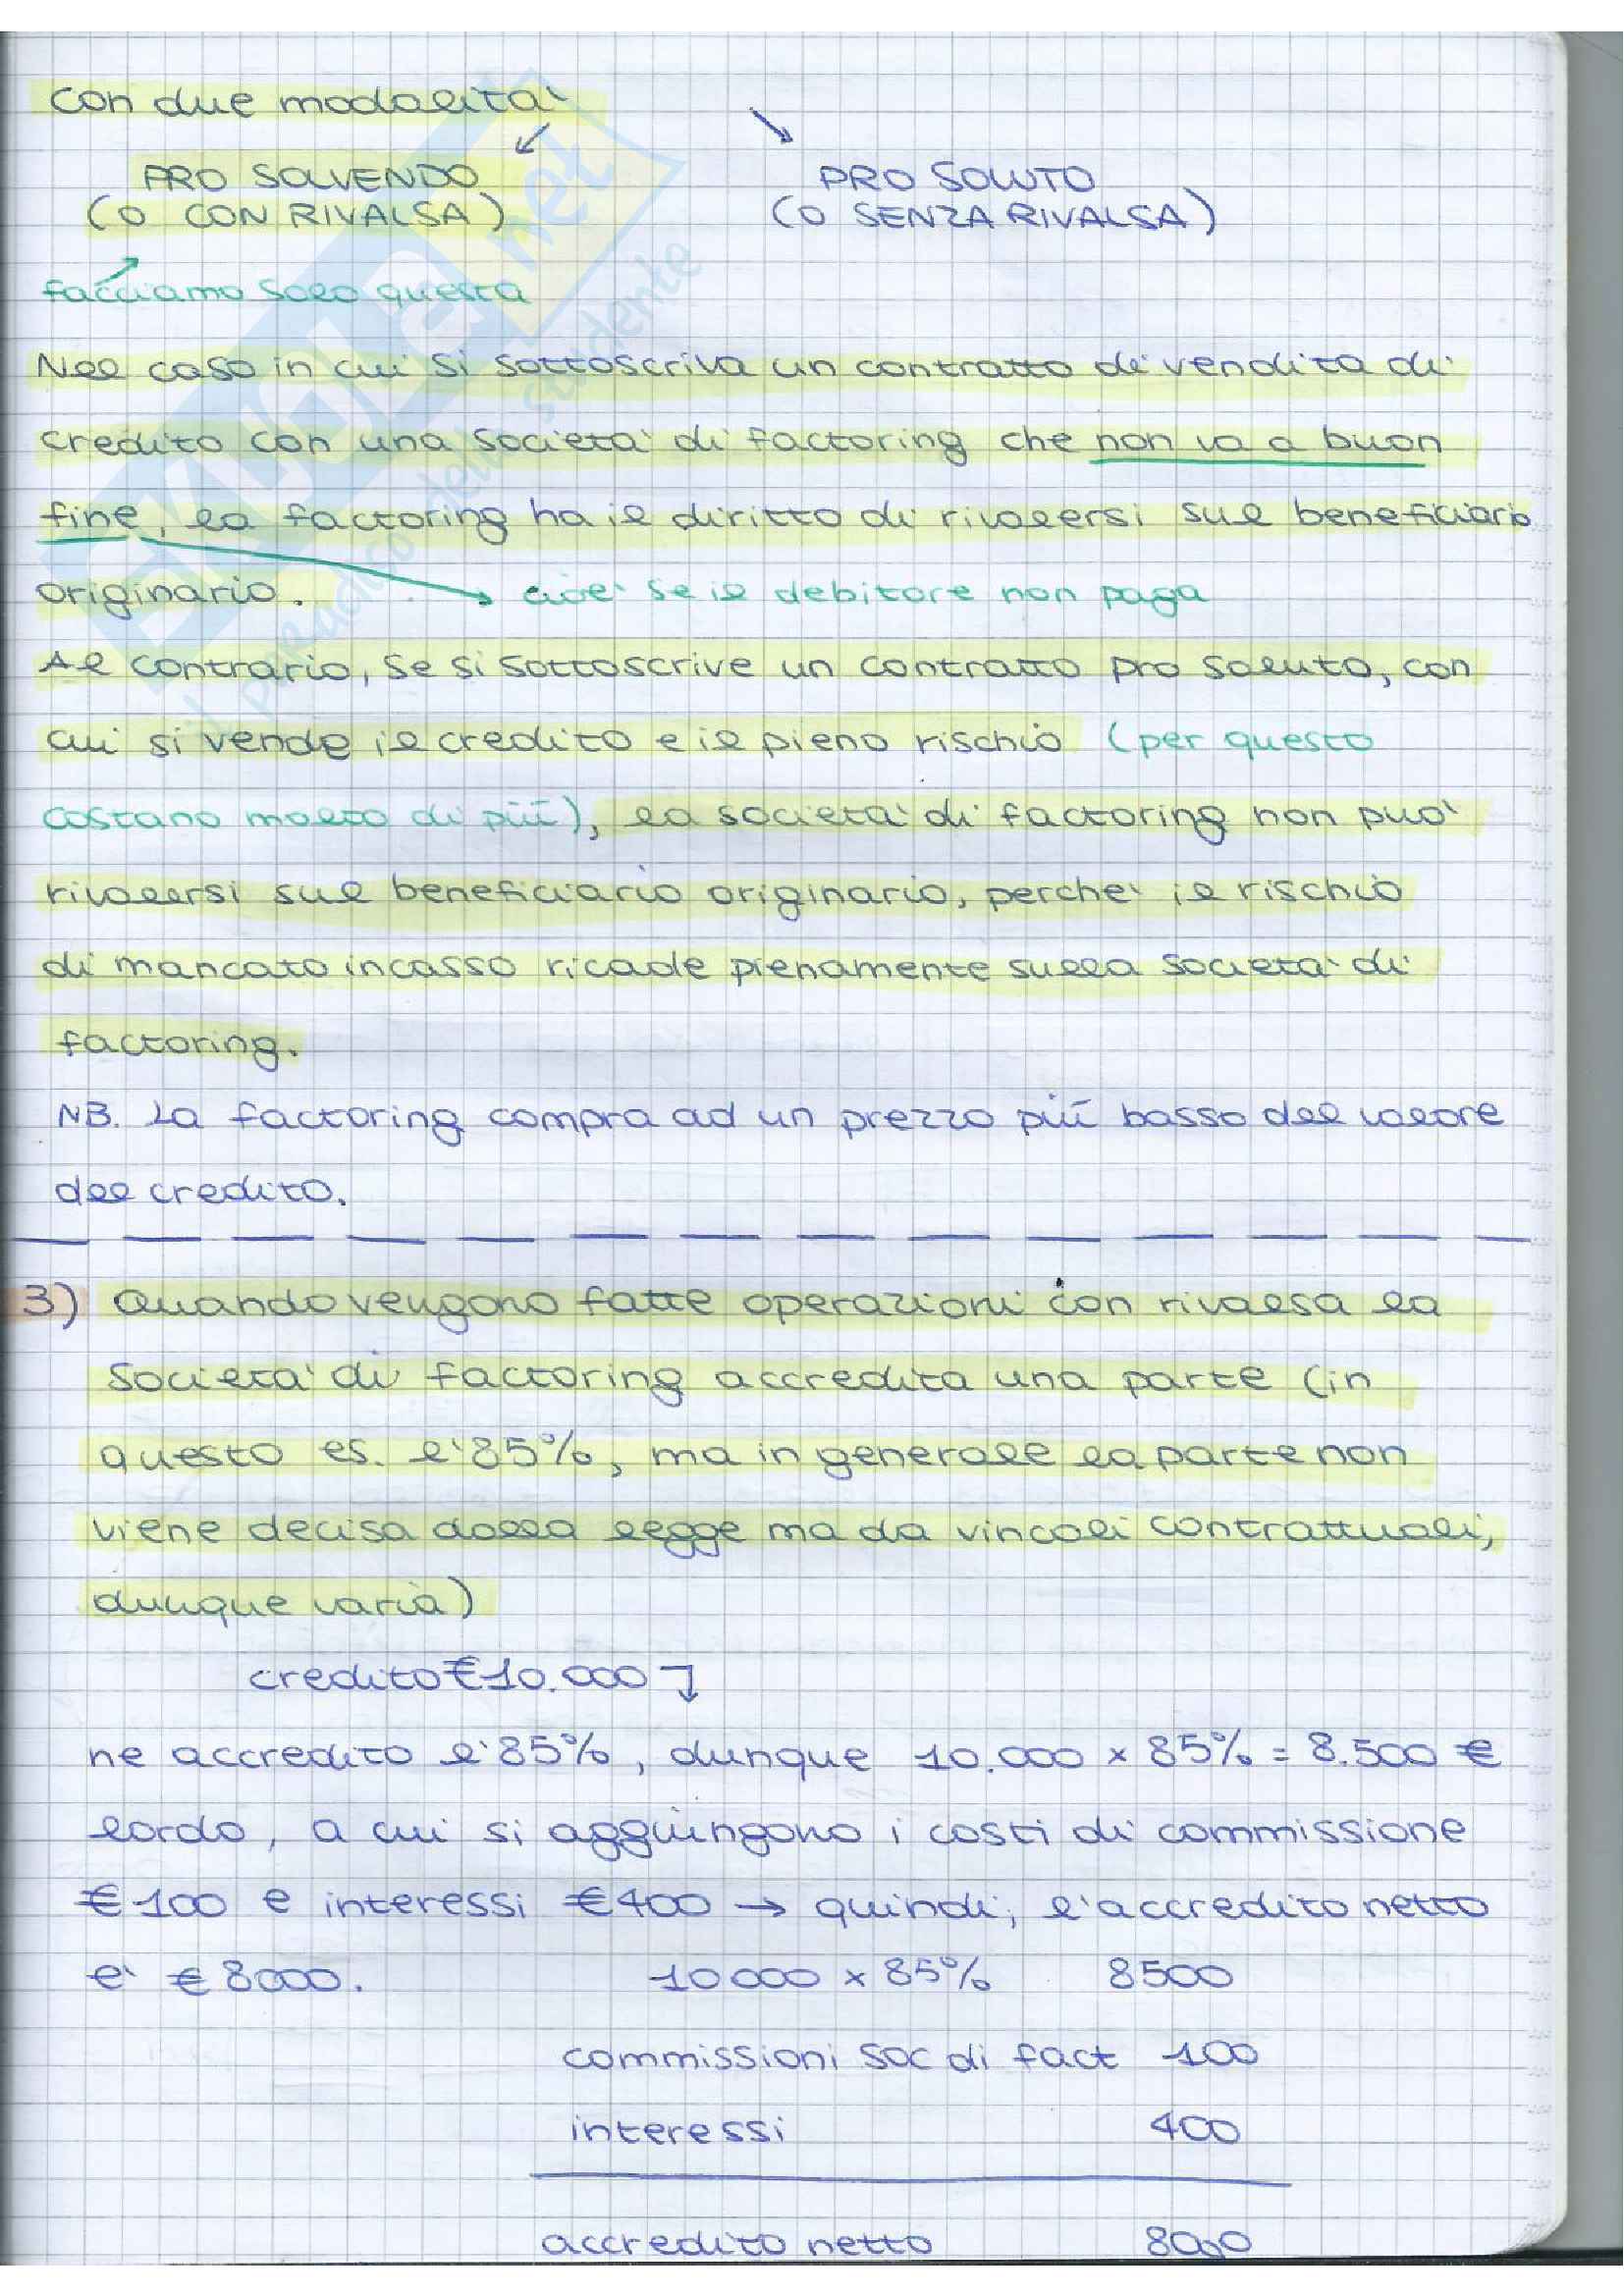 con due modalita'
PRO SOLVENDO
(O CON RIVALSA)
PRO SOLUTO
(O SENZA RIVALSA)
facciamo solo questa
Nel caso in cui si sottoscriva un contratto di vendita di
credito con una societa' di factoring che non va a buon
fine, la factoring ha il diritto di rivalersi sul beneficiario
originario.
cioe' se il debitore non paga
Al contrario, se si sottoscrive un contratto pro soluto, con
cui si vende il credito e il pieno rischio (per questo
costano molto di più), la societa' di factoring non puo'
rivalersi sul beneficiario originario, perche' il rischio
di mancato incasso ricade pienamente sulla societa' di
factoring.
NB. La factoring compra ad un prezzo più basso del valore
del credito.
3) Quando vengono fatte operazioni con rivalsa la
societa' di factoring accredita una parte (in
questo es. l'85%, ma in generale la parte non
viene decisa dalla legge ma da vincoli contrattuali,
dunque varia)
credito €10.000
ne accredito l'85%, dunque 10.000 x 85% = 8.500 €
lordo, a cui si aggiungono i costi di commissione
€100 e interessi €400 → quindi, l'accredito netto
e' €8000.
10000 x 85% 8500
commissioni soc di fact 100
interessi 400
accredito netto 8000